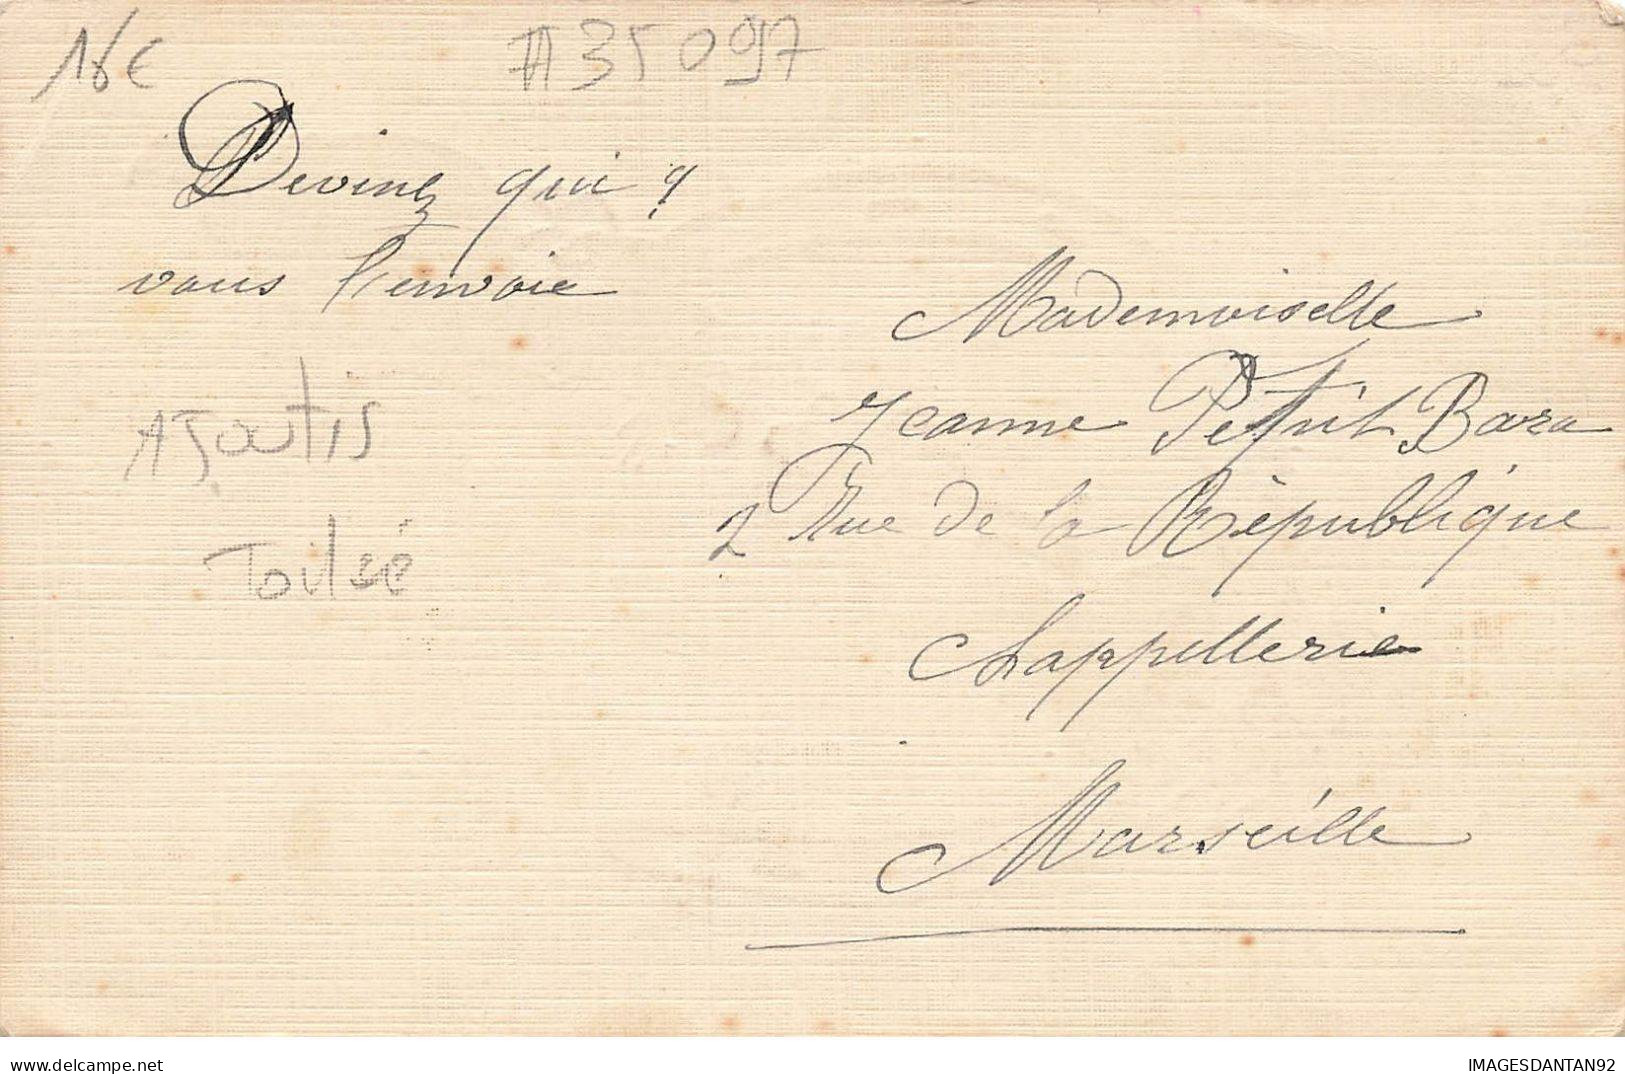 16€
#35097
Devinez qui ?
vous l'envoie
Ajoutis
Toilé
Mademoiselle
Jeanne Petit Bara
2 Rue de la République
Chappellerie
Marseille
delcampe.net
IMAGESDANTAN92